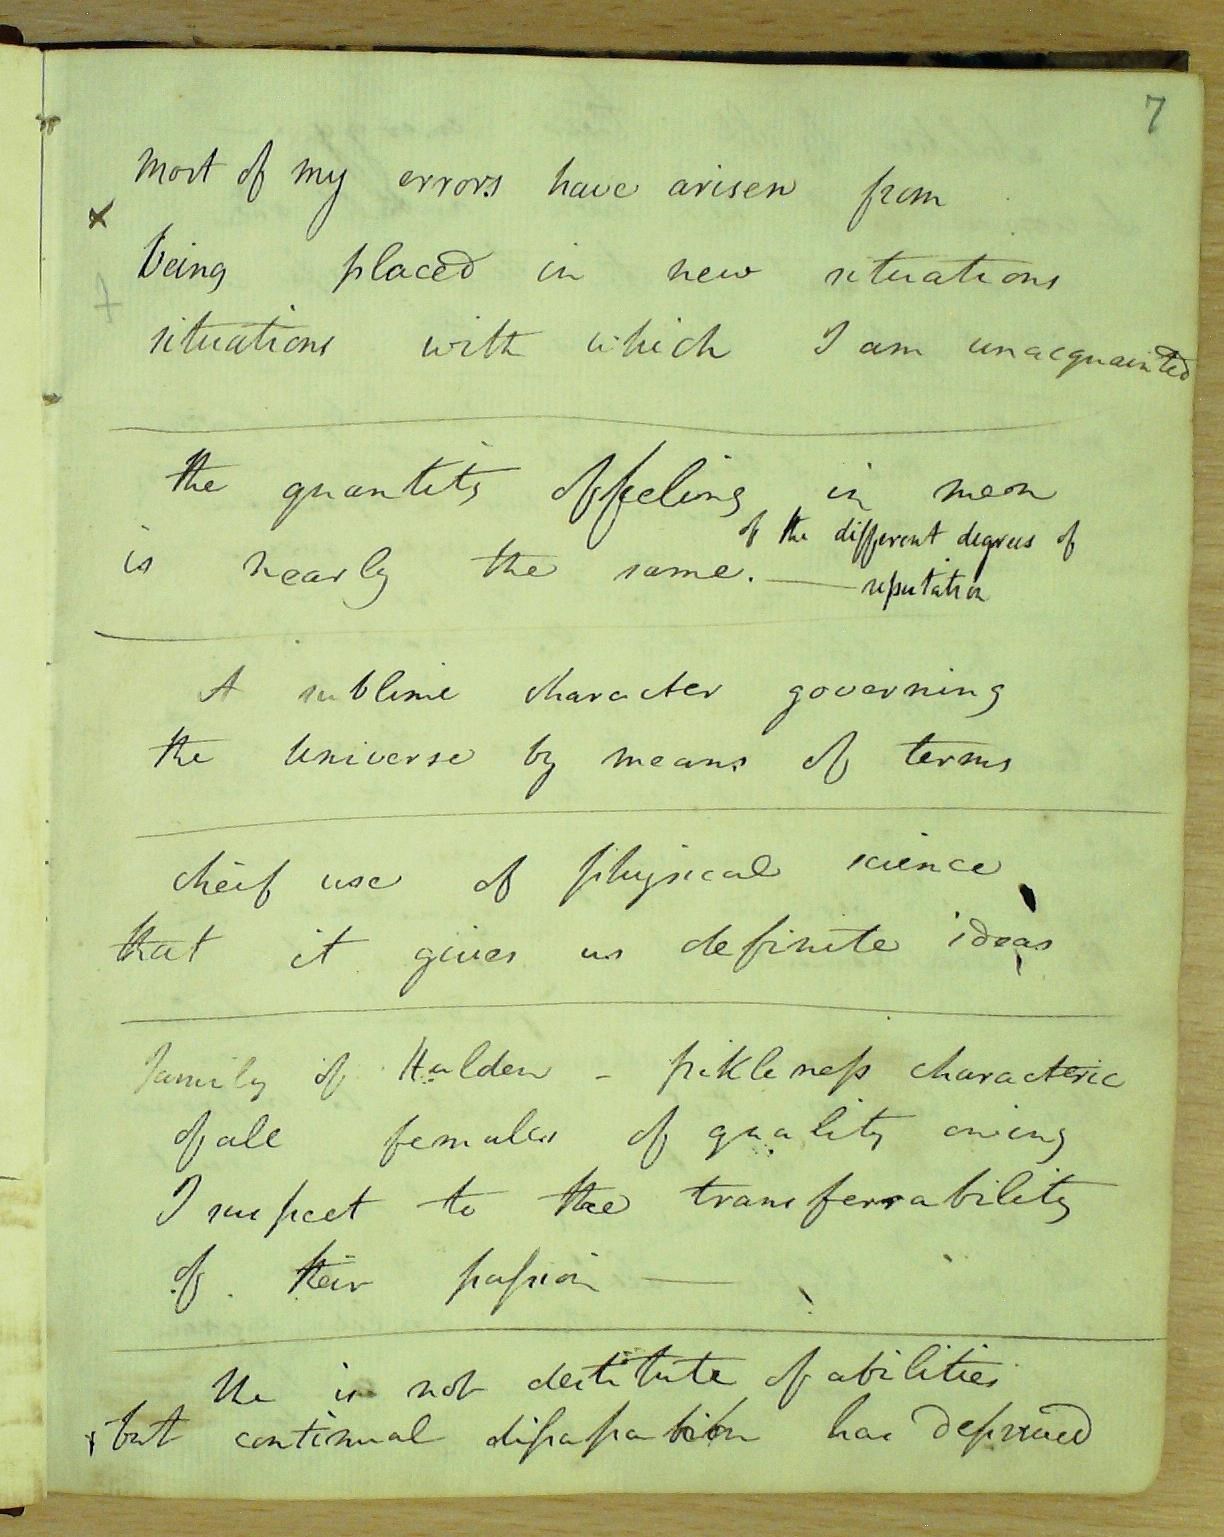 7
most of my errors have arisen from
being placed in new situations
situations with which I am unacquainted
the quantity of feeling in men
of the different degrees of
is nearly the same. — reputation
A sublime character governing
the Universe by means of terms
cheif use of physical science
that it gives us definite ideas
Family of Halden - fikleness characteric
of all females of quality owing
I suspect to the transferrability
of their passion —
He is not destitute of abilities
but continual has deprived